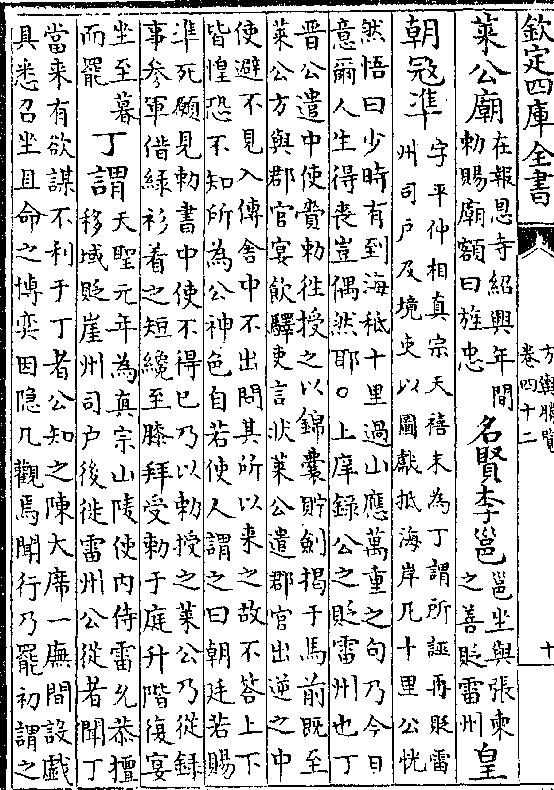 欽定四庫全書
方輿勝覽
卷四十二
十
萊公廟
在報恩寺紹興年間
勅賜廟額曰旌忠
名賢李邕
邕坐與張柬
之善貶雷州
皇
朝冦準
字平仲相真宗天禧末為丁謂所誣再貶雷
州司户及境吏以圖獻抵海岸凡十里公恍
然悟曰少時有到海秪十里過山應萬重之句乃今日
意爾人生得喪豈偶然耶○上庠録公之貶雷州也丁
晉公遣中使賫勅往授之以錦囊貯劍揭于馬前既至
萊公方與郡官宴飲驛吏言状萊公遣郡官出逆之中
使避不見入傳舍中不出問其所以来之故不答上下
皆惶恐不知所為公神色自若使人謂之曰朝廷若賜
準死願見勅書中使不得已乃以勅授之萊公乃從録
事参軍借緑衫着之短纔至膝拜受勅于庭升階復宴
坐至暮
而罷
丁謂
天聖元年為真宗山陵使内侍雷允恭擅
移域貶崖州司户後徙雷州公從者聞丁
當来有欲謀不利于丁者公知之陳大席一廡間設戯
具悉召坐且命之博奕因隐几觀焉聞行乃罷初謂之